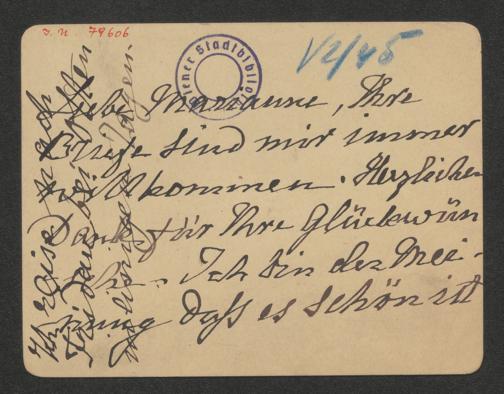 J. N. 79606
Wiener Stadtbibliothek
V2/45
Liebe Marianne, Ihre
Briefe sind mir immer
willkommen. Herzlichen
Dank für Ihre Glückwün
sche. Ich bin der Mei-
nung daß es schön ist
Ich reise nach